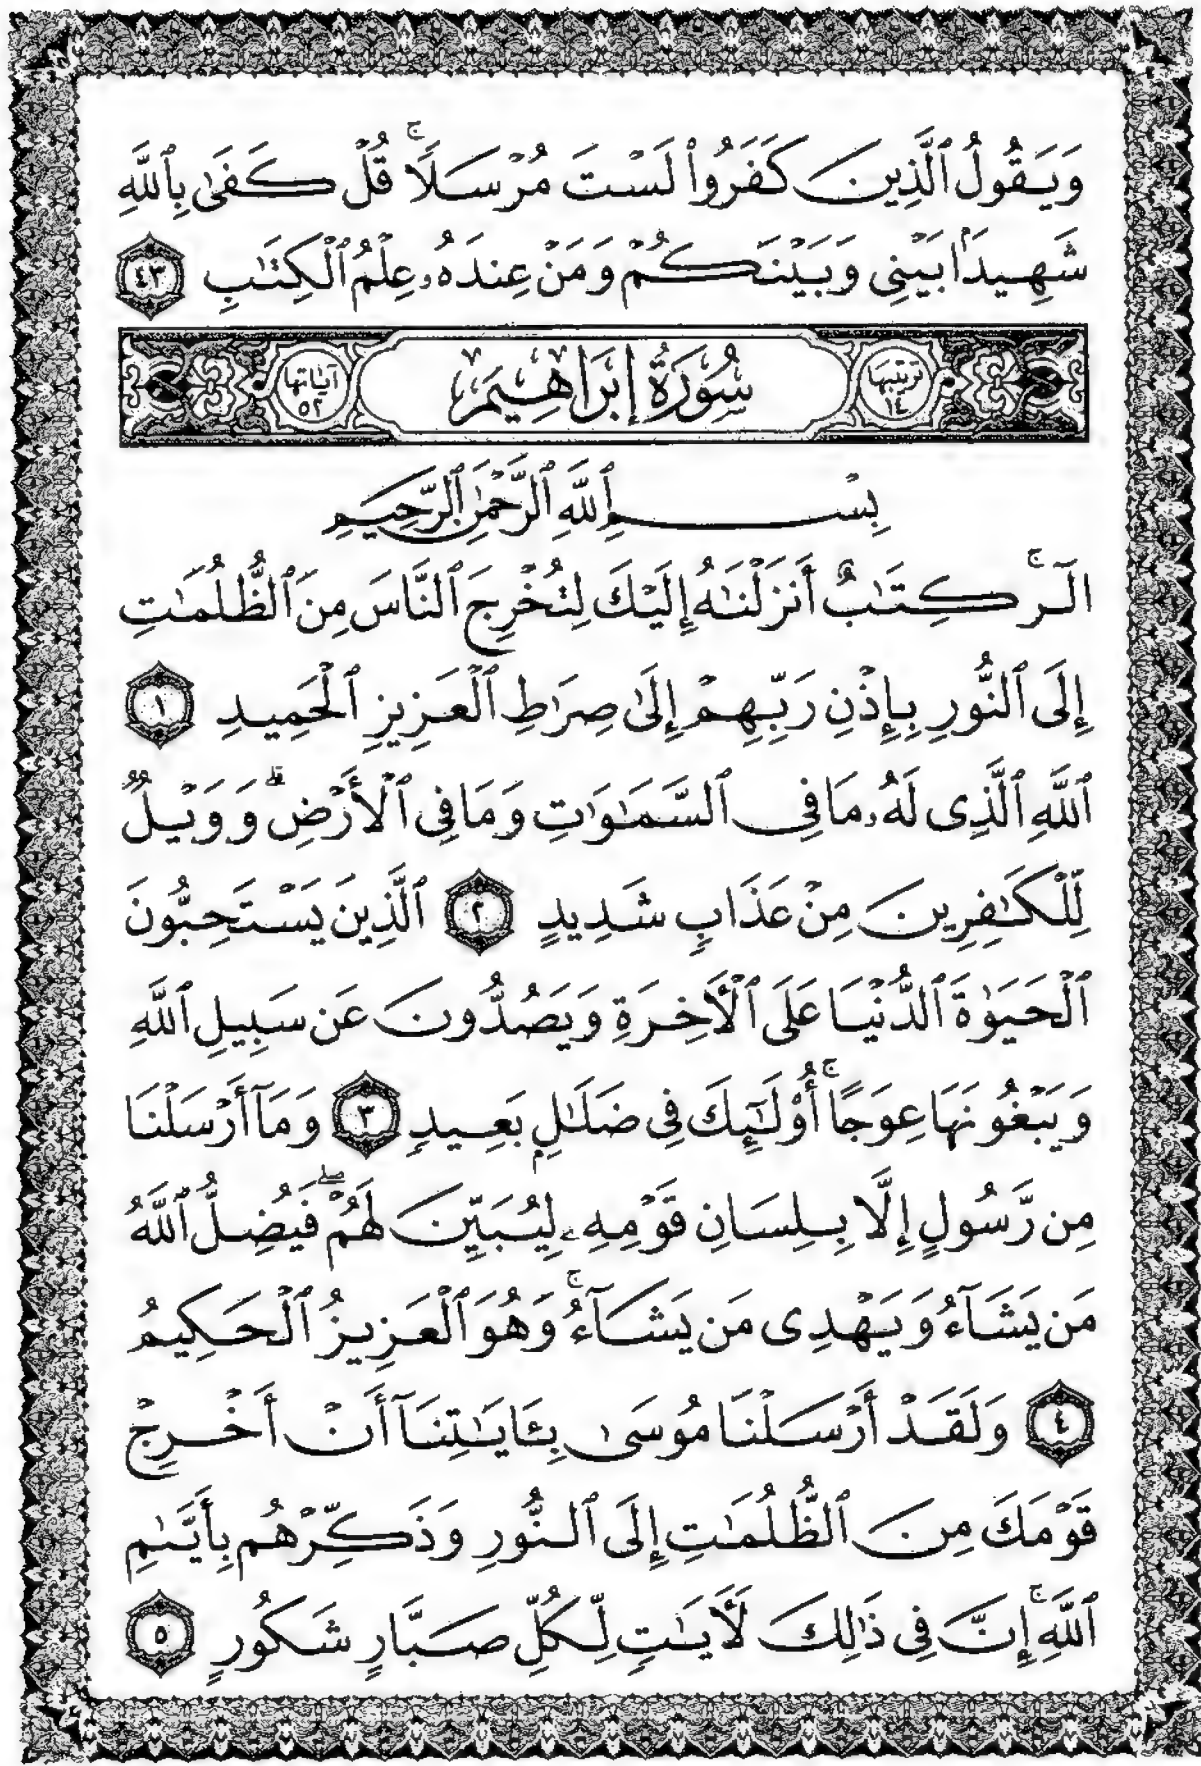 وَيَقُولُ ٱلَّذِينَ كَفَرُوا۟ لَسْتَ مُرْسَلًا ۚ قُلْ كَفَىٰ بِٱللَّهِ
شَهِيدًۢا بَيْنِى وَبَيْنَكُمْ وَمَنْ عِندَهُۥ عِلْمُ ٱلْكِتَٰبِ ٤٣
ترتيبها ١٤ سُورَةُ إِبْرَاهِيمَ آياتها ٥٢
بِسْمِ ٱللَّهِ ٱلرَّحْمَٰنِ ٱلرَّحِيمِ
الٓر ۚ كِتَٰبٌ أَنزَلْنَٰهُ إِلَيْكَ لِتُخْرِجَ ٱلنَّاسَ مِنَ ٱلظُّلُمَٰتِ
إِلَى ٱلنُّورِ بِإِذْنِ رَبِّهِمْ إِلَىٰ صِرَٰطِ ٱلْعَزِيزِ ٱلْحَمِيدِ ١
ٱللَّهِ ٱلَّذِى لَهُۥ مَا فِى ٱلسَّمَٰوَٰتِ وَمَا فِى ٱلْأَرْضِ ۗ وَوَيْلٌ
لِّلْكَٰفِرِينَ مِنْ عَذَابٍ شَدِيدٍ ٢ ٱلَّذِينَ يَسْتَحِبُّونَ
ٱلْحَيَوٰةَ ٱلدُّنْيَا عَلَى ٱلْأَخِرَةِ وَيَصُدُّونَ عَن سَبِيلِ ٱللَّهِ
وَيَبْغُونَهَا عِوَجًا ۚ أُو۟لَٰٓئِكَ فِى ضَلَٰلٍۭ بَعِيدٍ ٣ وَمَآ أَرْسَلْنَا
مِن رَّسُولٍ إِلَّا بِلِسَانِ قَوْمِهِۦ لِيُبَيِّنَ لَهُمْ ۖ فَيُضِلُّ ٱللَّهُ
مَن يَشَآءُ وَيَهْدِى مَن يَشَآءُ ۚ وَهُوَ ٱلْعَزِيزُ ٱلْحَكِيمُ
٤ وَلَقَدْ أَرْسَلْنَا مُوسَىٰ بِـَٔايَٰتِنَآ أَنْ أَخْرِجْ
قَوْمَكَ مِنَ ٱلظُّلُمَٰتِ إِلَى ٱلنُّورِ وَذَكِّرْهُم بِأَيَّىٰمِ
ٱللَّهِ ۚ إِنَّ فِى ذَٰلِكَ لَأَيَٰتٍ لِّكُلِّ صَبَّارٍ شَكُورٍ ٥